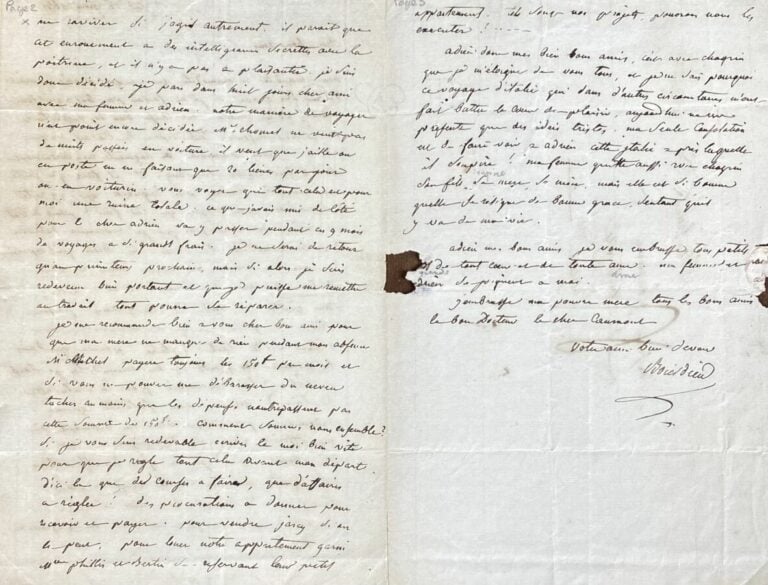 Page 2
me raviver si j'agis autrement. il parait que
cet enrouement a des intelligences secrettes avec la
poitrine, et il n'y a pas a plaisanter. je suis
donc décidé. je pars dans huit jours cher ami
avec ma femme et adrien. notre maniere de voyager
n'est point encore décidée. Mr chomel ne veut pas
de nuits passées en voiture, il veut que j'aille ou
en poste en ne faisant que 20 lieues par jour
ou en voiturin. vous voyez que tout cela est pour
moi une ruine totale. ce que j'avais mis de côté
pour le cher adrien va y passer pendant ces 9 mois
de voyages a si grands frais. je ne serai de retour
qu'au printems prochain, mais si alors je suis
redevenu bien portant et que je puisse me remettre
au travail tout pourra se réparer.
je me recommande bien a vous cher bon ami pour
que ma mere ne manque de rien pendant mon absence
Mr payera toujours les 150f par mois et
si vous ne pouvez me débarasser du neveu
tachez au moins que les dépenses n'outrepassent pas
cette somme de 150f. comment sommes nous ensemble?
si je vous suis redevable ecrivez le moi bien vite
pour que je regle tout cela avant mon départ
d'ici la que de courses a faire, que d'affaires
a regler! des procurations a donner pour
recevoir et payer. pour vendre jarcy si on
le peut, pour louer notre appartement garni
Mme phillis et Bertin se reservant leur petit
Page 3
appartement. tels sont nos projets, pourons nous les
executer! -----
adieu donc mes bien bons amis, c'est avec chagrin
que je m'éloigne de vous tous, et je ne sais pourquoi
ce voyage d'italie qui dans d'autres circonstances m'eut
fait battre le cœur de plaisir, aujourdhui ne me
présente que des idées tristes. ma seule consolation
est de faire voir a adrien cette italie apres laquelle
il soupire! ma femme quitte aussi avec chagrin
son fils, sa niece, sa maison, mais elle est si bonne
qu'elle se résigne de bonne grace, sentant qu'il
y va de ma vie.
adieu mes bons amis je vous embrasse tous petits
et de tout cœur et de toute ame. ma femme et
adrien se joignent a moi.
J'embrasse ma pauvre mere tous les bons amis
le bon Docteur le cher Caumont
votre ami bien devoué
Boieldieu